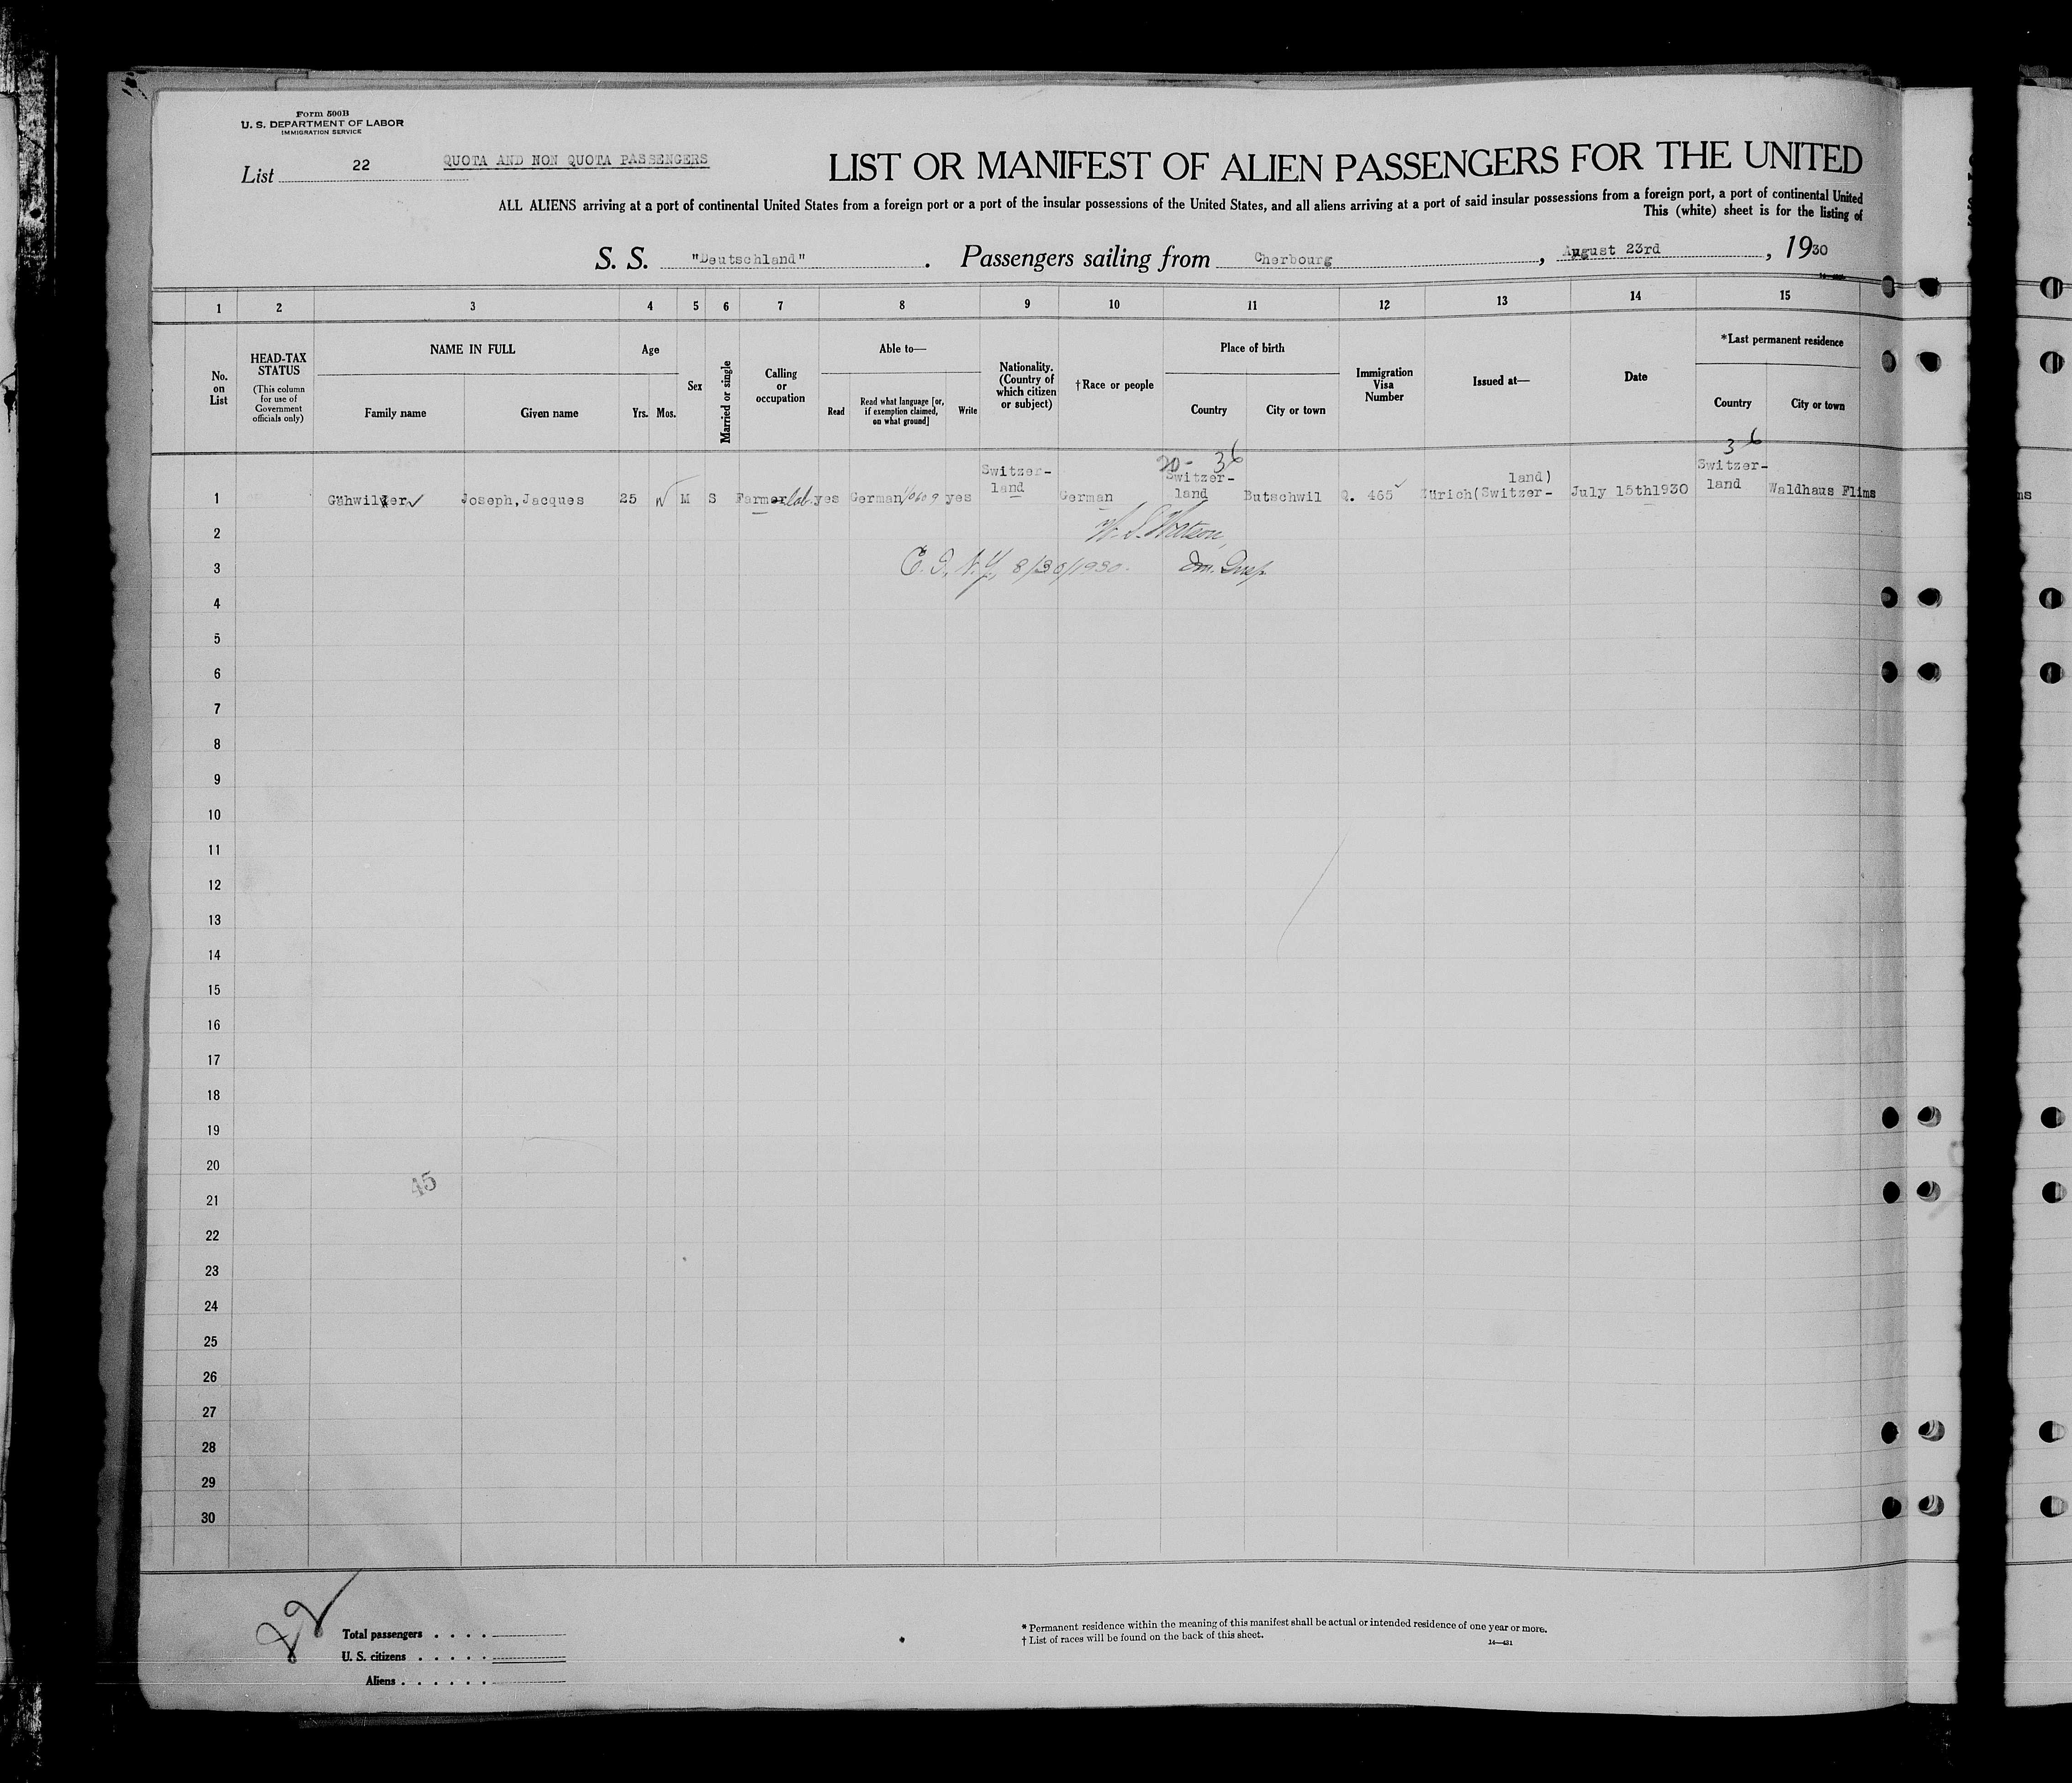 Form 500B
U. S. DEPARTMENT OF LABOR
IMMIGRATION SERVICE
List 22
QUOTA AND NON QUOTA PASSENGERS
LIST OR MANIFEST OF ALIEN PASSENGERS FOR THE UNITED
ALL ALIENS arriving at a port of continental United States from a foreign port or a port of the insular possessions of the United States, and all aliens arriving at a port of said insular possessions from a foreign port, a port of continental United
This (white) sheet is for the listing of
S. S. "Deutschland". Passengers sailing from Cherbourg, August 23rd, 1930
1 2 3 4 5 6 7 8 9 10 11 12 13 14 15
No. on List
HEAD-TAX STATUS
(This column for use of Government officials only)
NAME IN FULL
Family name
Given name
Age
Yrs. Mos.
Sex
Married or single
Calling or occupation
Able to—
Read
Read what language [or, if exemption claimed, on what ground]
Write
Nationality. (Country of which citizen or subject)
†Race or people
Place of birth
Country
City or town
Immigration Visa Number
Issued at—
Date
*Last permanent residence
Country
City or town
20- 36
36
1 Gähwiler Joseph,Jacques 25 M S Farmer lab. yes German yes Switzer-land German Switzer-land Butschwil Q. 465 Zürich(Switzer-land) July 15th1930 Switzer-land Waldhaus Flims
2
W. S. Watson,
3
8/30/1930. Im. Insp
4
5
6
7
8
9
10
11
12
13
14
15
16
17
18
19
20
45
21
22
23
24
25
26
27
28
29
30
22
Total passengers . . . .
U. S. citizens . . . . .
Aliens . . . . . .
* Permanent residence within the meaning of this manifest shall be actual or intended residence of one year or more.
† List of races will be found on the back of this sheet.
14—431